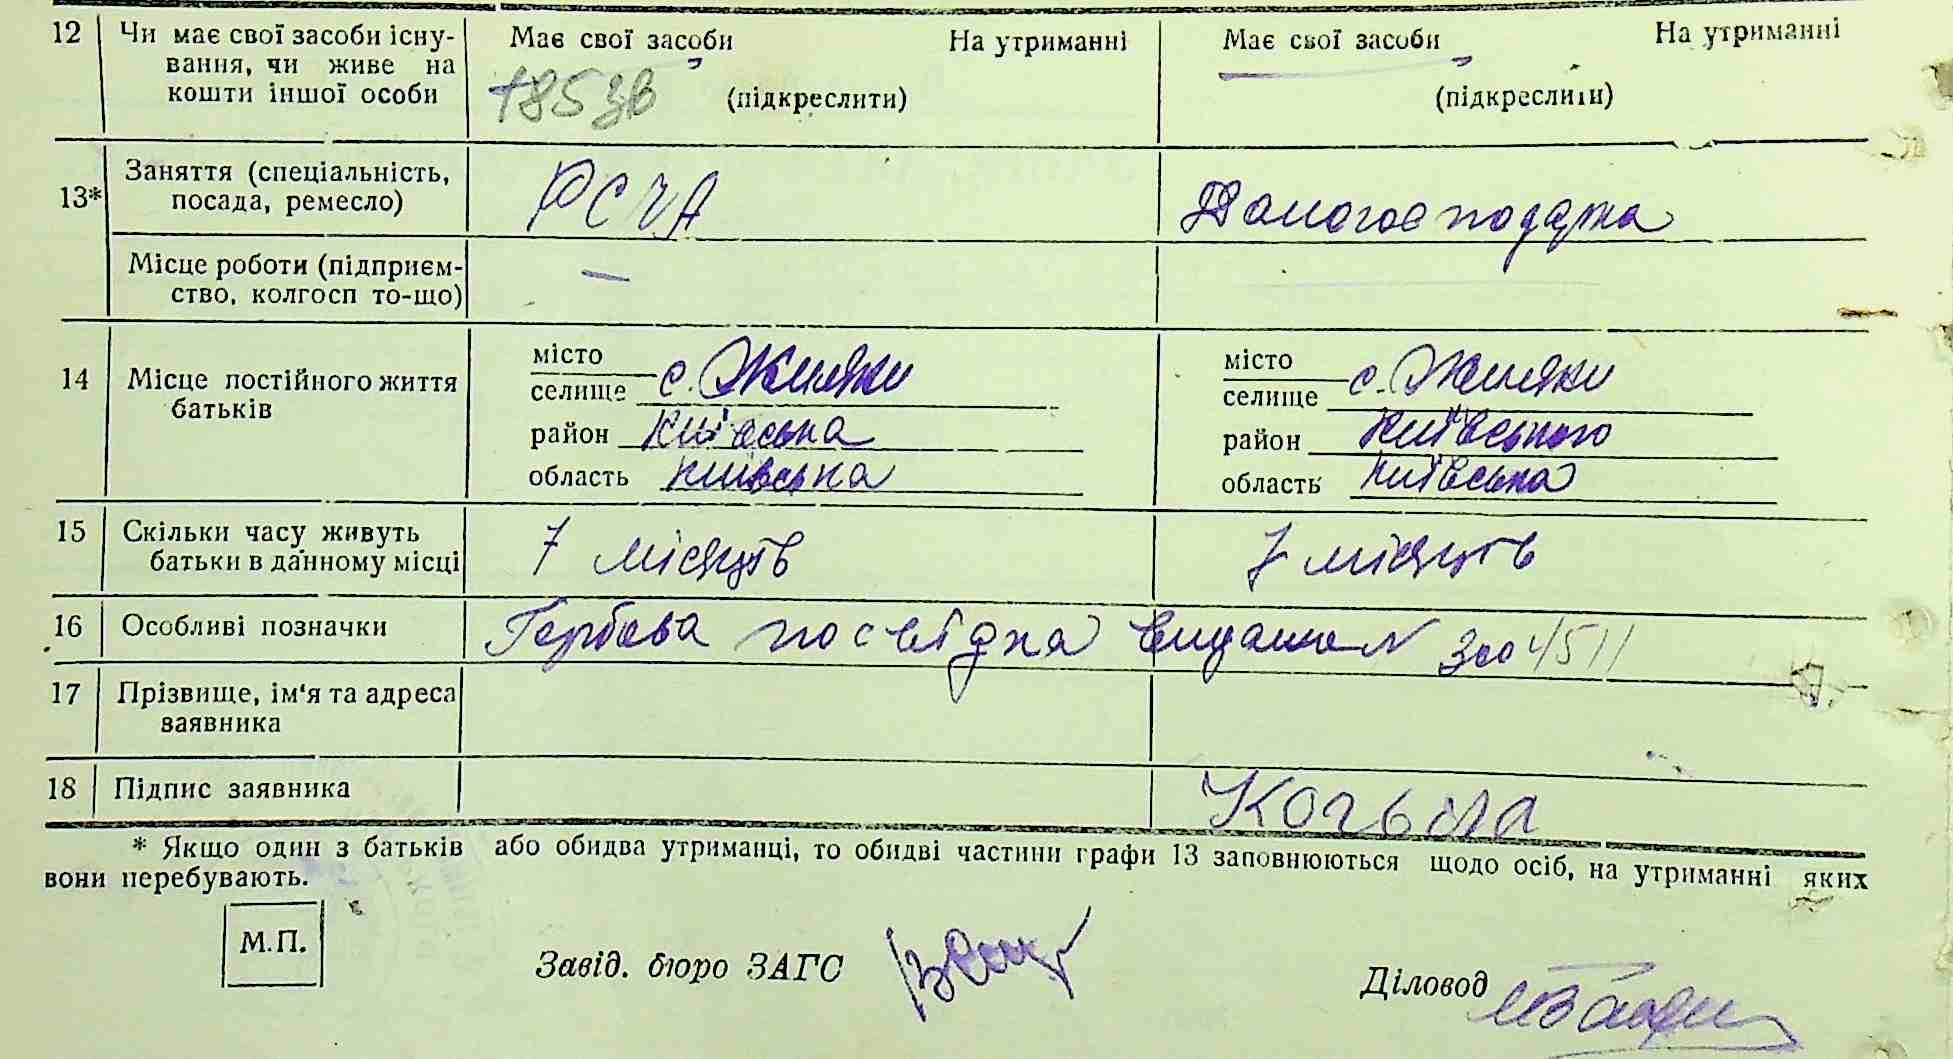 12 Чи має свої засоби існу- Має свої засоби На утриманні Має свої засоби На утриманні
вання, чи живе на
кошти іншої особи (підкреслити) (підкреслити)
Заняття (спеціальність,
13* посада, ремесло) РСЧА Домогосподарка
Місце роботи (підприєм- —
ство, колгосп то-що)
місто місто
14 Місце постійного життя селище с. Жиляни селище с. Жиляни
батьків район Київська район Київського
область Київська область Київська
15 Скільки часу живуть
батьки в данному місці 7 місяців 7 місяців
16 Особливі позначки Гербова посвідка видана N
17 Прізвище, ім'я та адреса
заявника
18 Підпис заявника
* Якщо один з батьків або обидва утриманці, то обидві частини графи 13 заповнюються щодо осіб, на утриманні яких
вони перебувають.
М.П.
Завід. бюро ЗАГС
Діловод